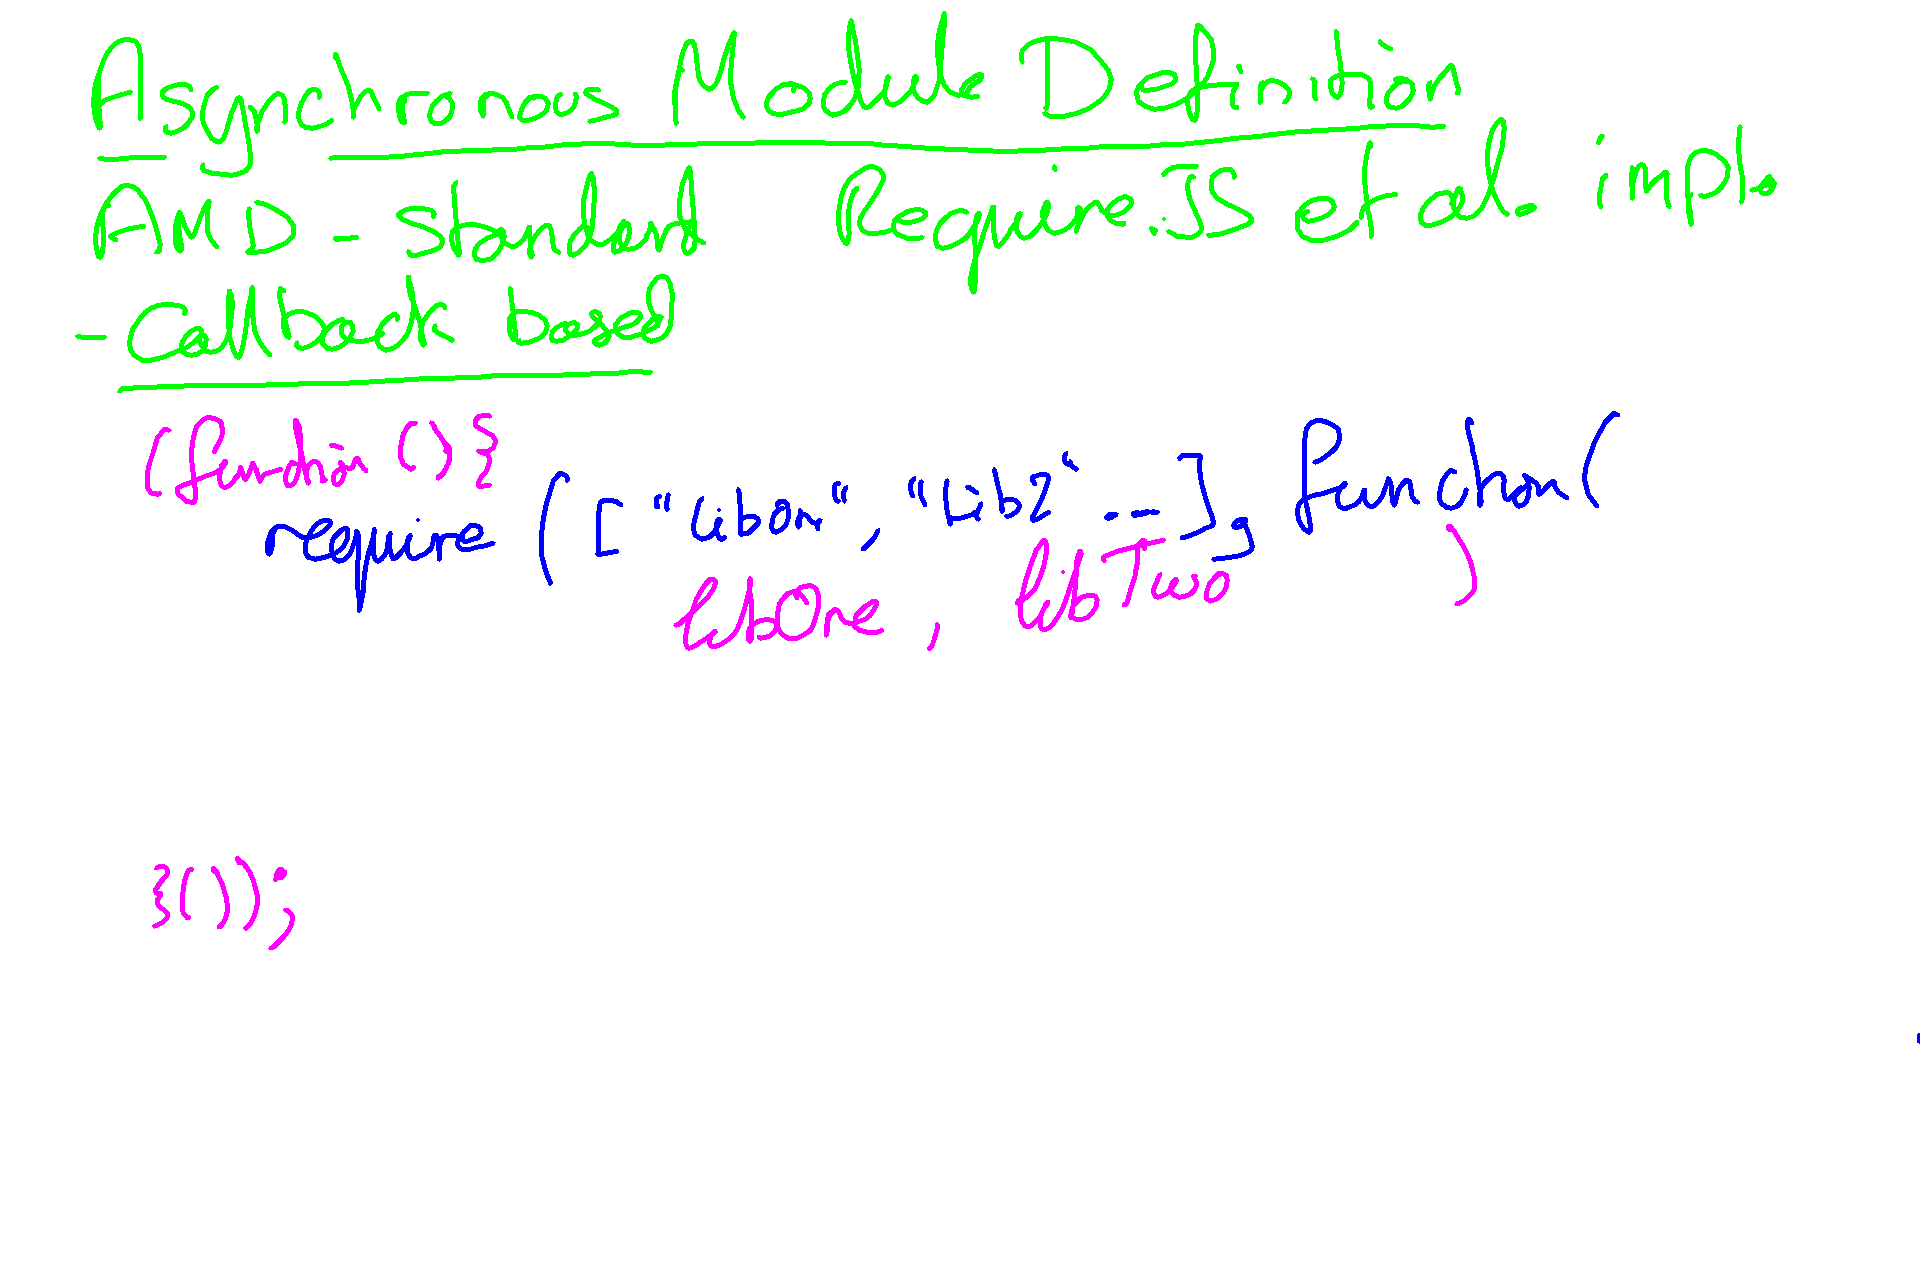 Asynchronous Module Definition
AMD - Standard Require.JS et al. impl.
- Callback based
(function () {
require ( [ "libOn", "Lib2" .. ], function (
libOne, libTwo )
}());